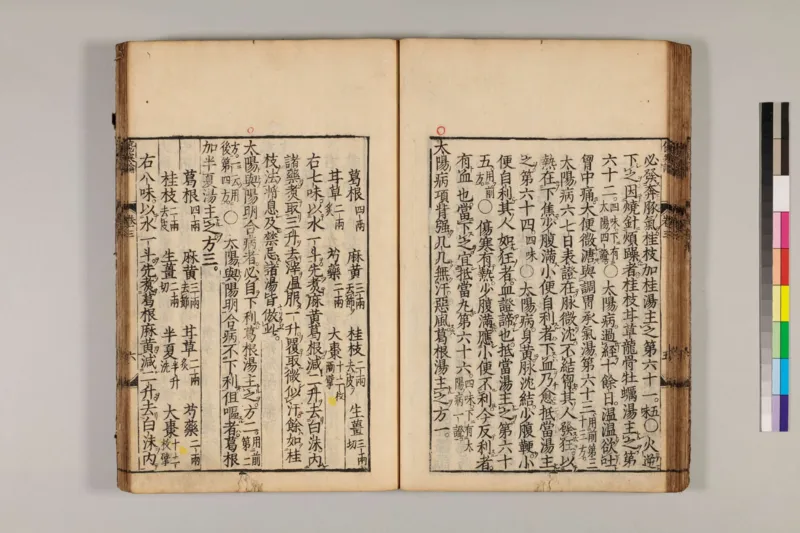 必發奔豚氣桂枝加桂湯主之第六十一五味○火逆
下之因燒針煩躁者桂枝甘草龍骨牡蠣湯主之第
六十二四味下有太陽四證○太陽病過經十餘日溫溫欲吐
胷中痛大便微溏與調胃承氣湯第六十三用前第三十三方
太陽病六七日表證在脉微沈不結胷其人發狂以
熱在下焦少腹滿小便自利者下血乃愈抵當湯主
之第六十四四味○太陽病身黃脉沈結少腹鞕小
便自利其人如狂者血證諦也抵當湯主之第六十
五用前方○傷寒有熱少腹滿應小便不利今反利者
有血也當下之宜抵當丸第六十六四味下有太陽病一證
太陽病項背强几几無汗惡風葛根湯主之方一
葛根四兩 麻黃三兩去節 桂枝二兩去皮 生薑三兩切
甘草二兩炙 芍藥二兩 大棗十二枚擘
右七味以水一斗先煮麻黃葛根減二升去白沫內
諸藥煮取三升去滓溫服一升覆取微似汗餘如桂
枝法將息及禁忌諸湯皆倣此
太陽與陽明合病者必自下利葛根湯主之方二用前第一
方一云用後第四方○太陽與陽明合病不下利但嘔者葛根
加半夏湯主之方三
葛根四兩 麻黃三兩去節 甘草二兩炙 芍藥二兩
桂枝二兩去皮 生薑二兩切 半夏半升洗 大棗十二枚擘
右八味以水一斗先煮葛根麻黃減二升去白沫內